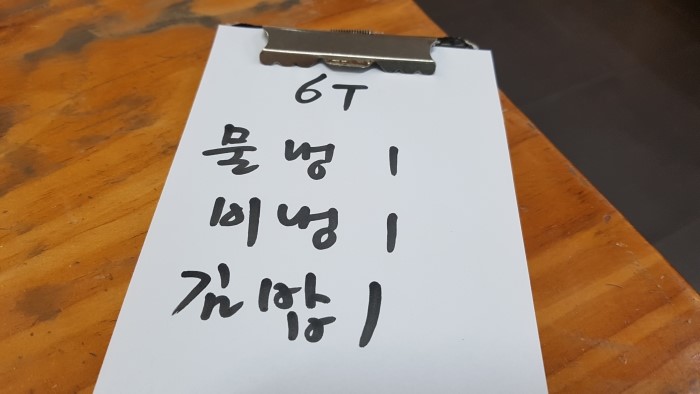 6T
물냉 1
비냉 1
김밥 1